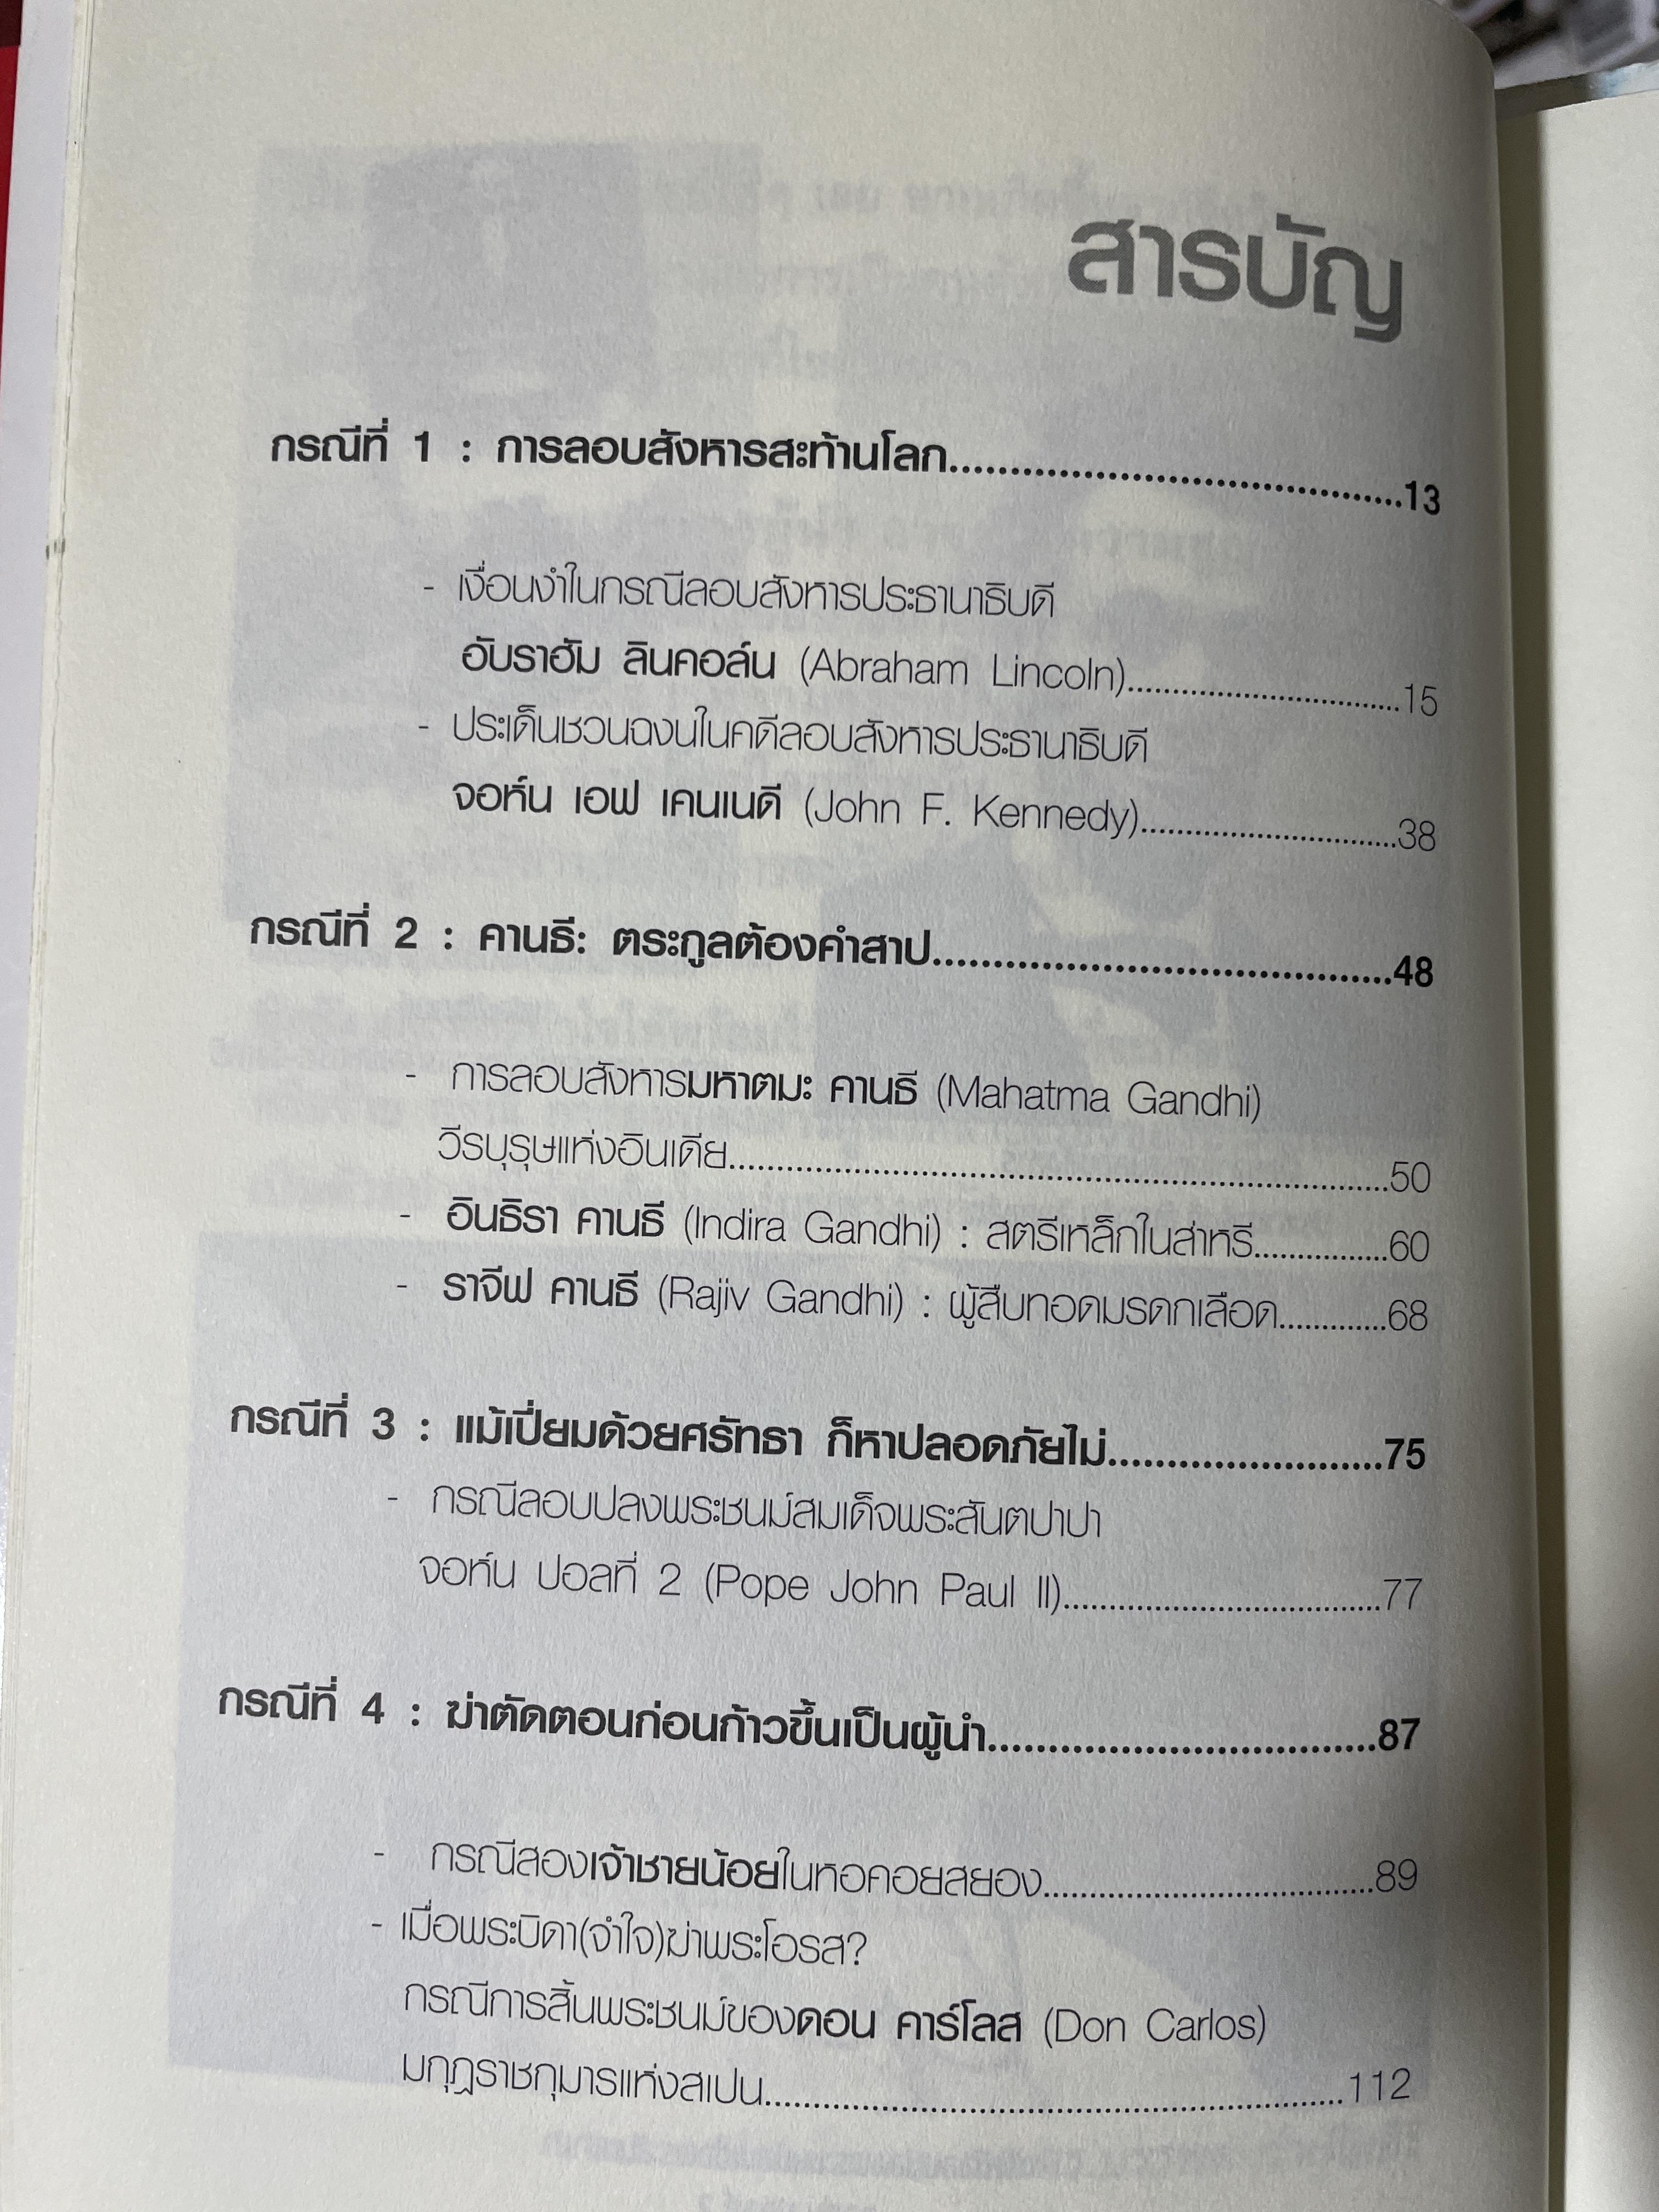 สารบัญ
กรณีที่ 1 : การลอบสังหารสะท้านโลก.....................................13
- เงื่อนงำในกรณีลอบสังหารประธานาธิบดี
อับราฮัม ลินคอล์น (Abraham Lincoln).............................15
- ประเด็นชวนฉงนในคดีลอบสังหารประธานาธิบดี
จอห์น เอฟ เคนเนดี (John F. Kennedy)...........................38
กรณีที่ 2 : คานธี: ตระกูลต้องคำสาป......................................48
- การลอบสังหารมหาตมะ คานธี (Mahatma Gandhi)
วีรบุรุษแห่งอินเดีย.....................................................................50
- อินธิรา คานธี (Indira Gandhi) : สตรีเหล็กในส่าหรี..............60
- ราจีฟ คานธี (Rajiv Gandhi) : ผู้สืบทอดมรดกเลือด............68
กรณีที่ 3 : แม้เปี่ยมด้วยศรัทธา ก็หาปลอดภัยไม่.......................75
- กรณีลอบปลงพระชนม์สมเด็จพระสันตปาปา
จอห์น ปอลที่ 2 (Pope John Paul II).................................77
กรณีที่ 4 : ฆ่าตัดตอนก่อนก้าวขึ้นเป็นผู้นำ................................87
- กรณีสองเจ้าชายน้อยในหอคอยสยอง..................................89
- เมื่อพระบิดา(จำใจ)ฆ่าพระโอรส?
กรณีการสิ้นพระชนม์ของดอน คาร์โลส (Don Carlos)
มกุฎราชกุมารแห่งสเปน............................................................112